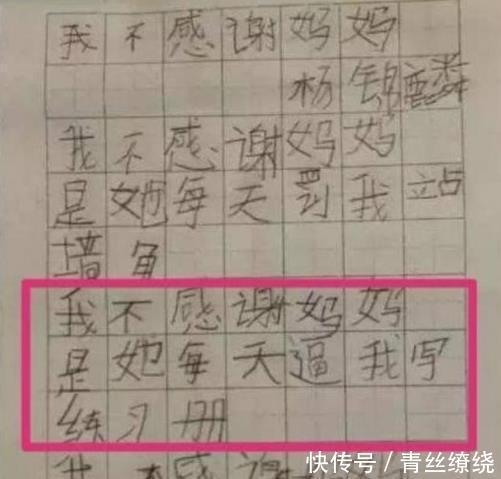 我不感谢妈妈
杨锦麟
我不感谢妈妈
是她每天罚我站
墙角
我不感谢妈妈
是她每天逼我写
练习册
我不感谢妈
快传号／青丝缭绕